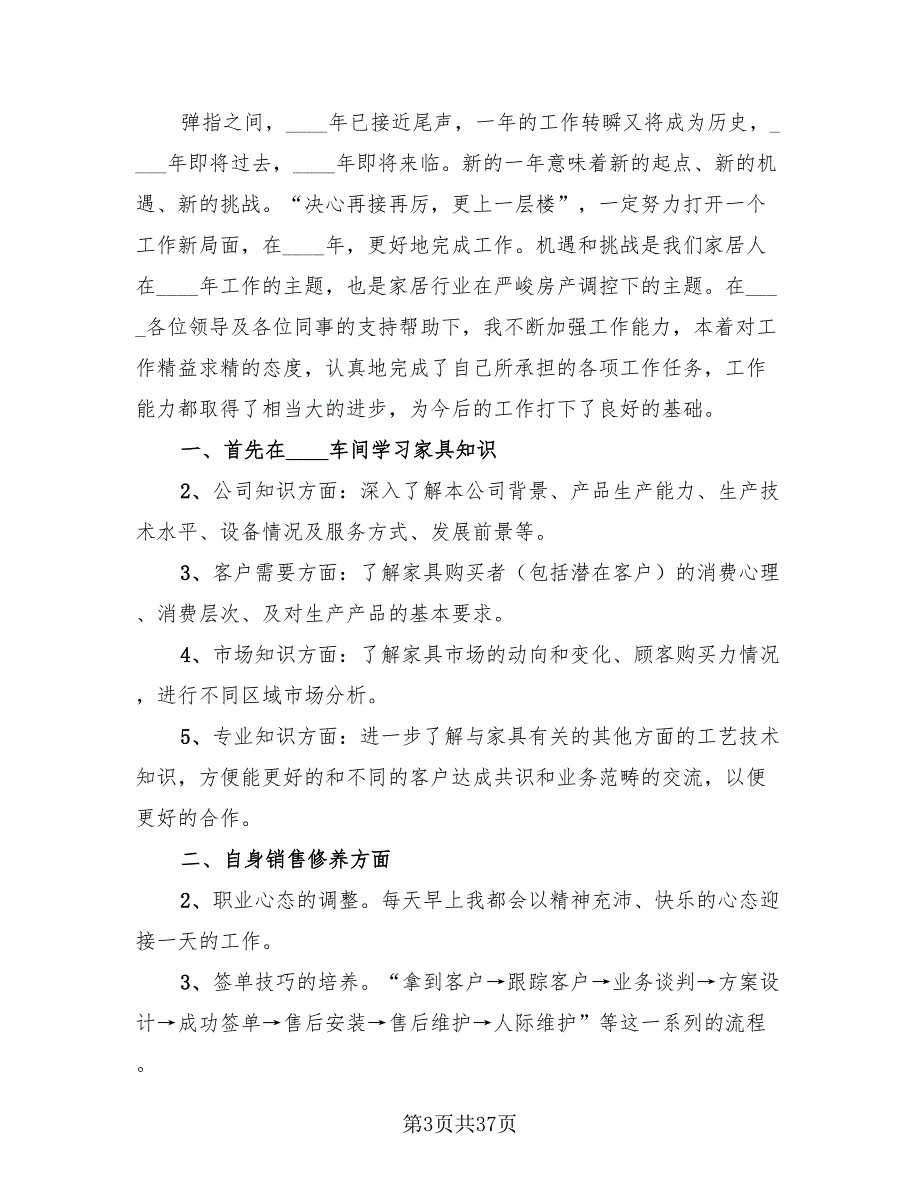 弹指之间，____年已接近尾声，一年的工作转瞬又将成为历史，_
___年即将过去，____年即将来临。新的一年意味着新的起点、新的机
遇、新的挑战。“决心再接再厉，更上一层楼”，一定努力打开一个
工作新局面，在____年，更好地完成工作。机遇和挑战是我们家居人
在____年工作的主题，也是家居行业在严峻房产调控下的主题。在___
_各位领导及各位同事的支持帮助下，我不断加强工作能力，本着对工
作精益求精的态度，认真地完成了自己所承担的各项工作任务，工作
能力都取得了相当大的进步，为今后的工作打下了良好的基础。
一、首先在____车间学习家具知识
2、公司知识方面：深入了解本公司背景、产品生产能力、生产技
术水平、设备情况及服务方式、发展前景等。
3、客户需要方面：了解家具购买者（包括潜在客户）的消费心理
、消费层次、及对生产产品的基本要求。
4、市场知识方面：了解家具市场的动向和变化、顾客购买力情况
，进行不同区域市场分析。
5、专业知识方面：进一步了解与家具有关的其他方面的工艺技术
知识，方便能更好的和不同的客户达成共识和业务范畴的交流，以便
更好的合作。
二、自身销售修养方面
2、职业心态的调整。每天早上我都会以精神充沛、快乐的心态迎
接一天的工作。
3、签单技巧的培养。“拿到客户→跟踪客户→业务谈判→方案设
计→成功签单→售后安装→售后维护→人际维护”等这一系列的流程
。
第3页共37页